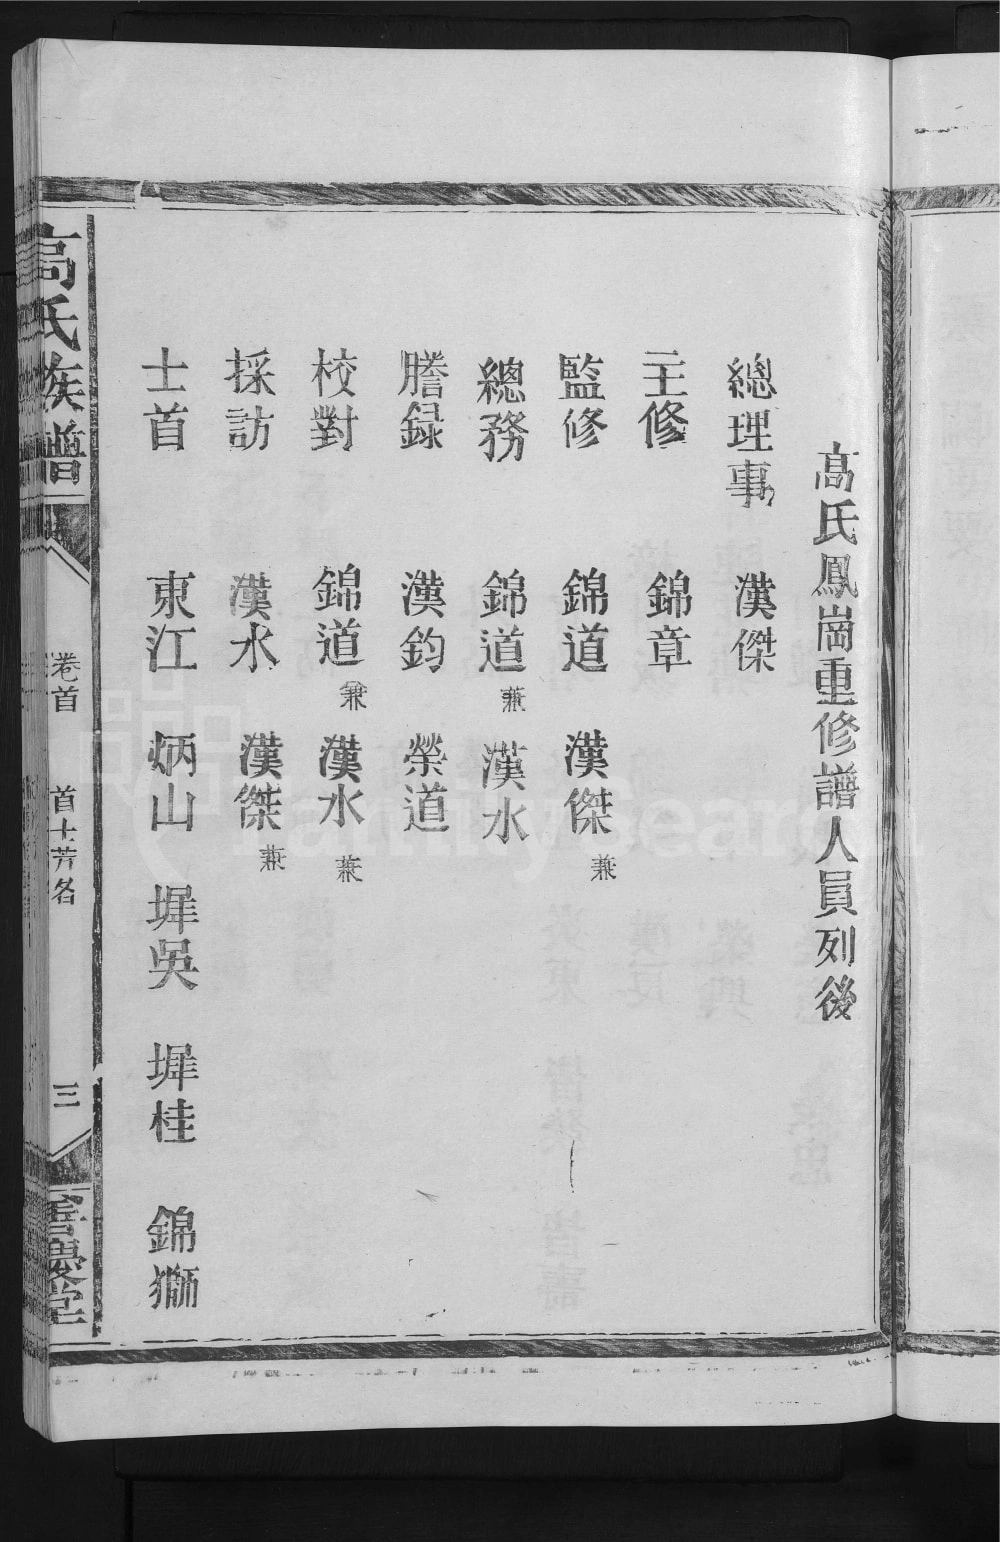 高氏鳳崗重修譜人員列後
總理事 漢傑
主修 錦章
監修 錦道 漢傑兼
總務 錦道兼 漢水
謄録 漢鈞 榮道
校對 錦道兼 漢水兼
採訪 漢水 漢傑兼
士首 東江 炳山 墀吳 墀桂 錦獅
高氏族譜 卷首 首士芳名 三 堂
FamilySearch